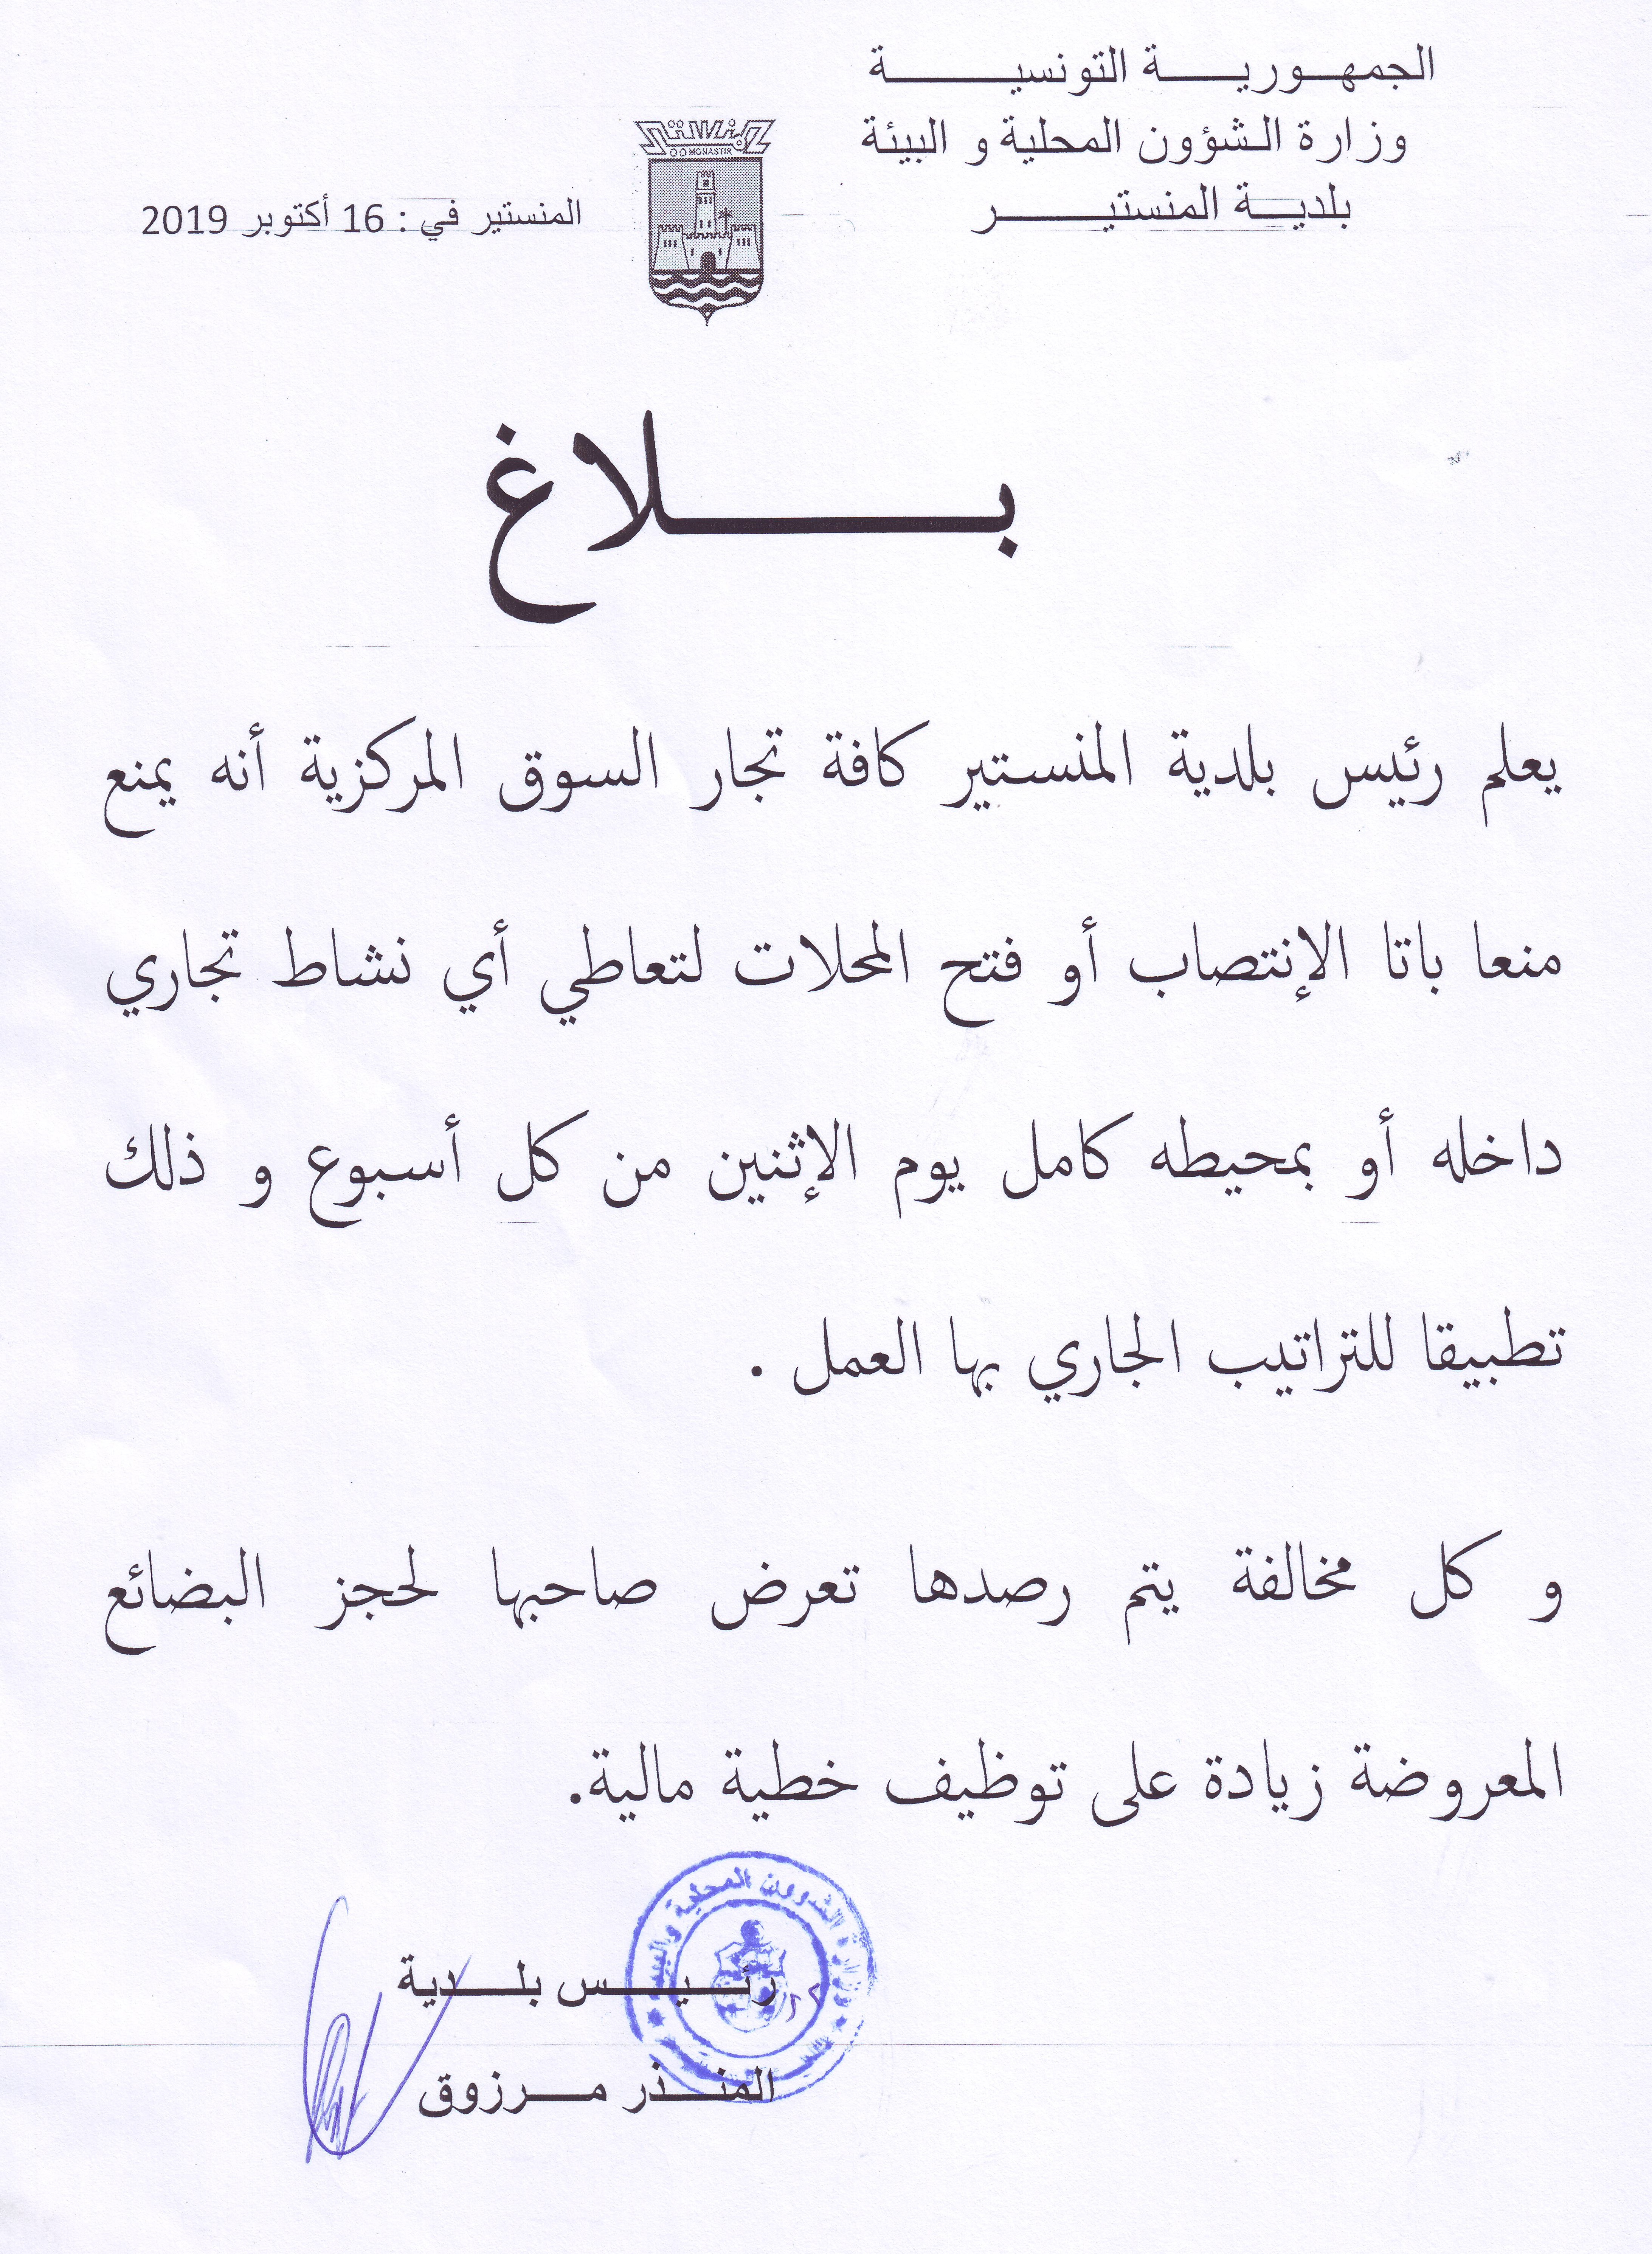 الجمهورية التونسية
وزارة الشؤون المحلية و البيئة
بلدية المنستير
المنستير
MONASTIR
المنستير في : 16 أكتوبر 2019
بلاغ
يعلم رئيس بلدية المنستير كافة تجار السوق المركزية أنه يمنع
منعا باتا الإنتصاب أو فتح المحلات لتعاطي أي نشاط تجاري
داخله أو بمحيطه كامل يوم الإثنين من كل أسبوع و ذلك
تطبيقا للتراتيب الجاري بها العمل .
و كل مخالفة يتم رصدها تعرض صاحبها لحجز البضائع
المعروضة زيادة على توظيف خطية مالية.
الشؤون المحلية والبيئة
رئيس بلدية
المنذر مرزوق